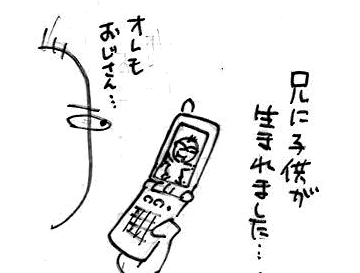 兄に子供が
生まれました…
オレも
おじさん…